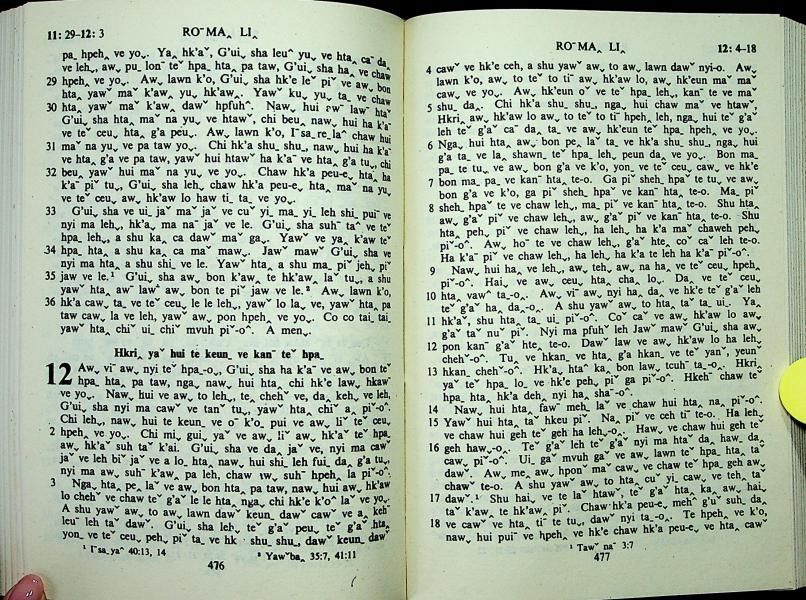 11: 29–12: 3 RO‾ MA‸ LI‸
pa‸ hpeh‸ ve yo⌄. Ya‸ hk'aˇ, G'ui⌄ sha leuˆ yu⌄ ve hta‸ ca‾ da‸
ve leh⌄, aw⌄ pu‸ lon‾ teˇ hpa‸ hta‸ pa taw, G'ui⌄ sha ha‸ ve chaw
29 hpeh⌄ ve yo⌄. Aw⌄ lawn k'o, G'ui⌄ sha hk'e leˇ piˇ ve aw⌄ bon
hta‸ yawˇ maˇ k'aw‸ yu‸ hk'aw‸. Yawˇ ku‸ yu‸ ta‸ ve chaw
30 hta‸ yawˇ maˇ k'aw‸ daw‸ hpfuhˆ. Naw⌄ hui
G'ui⌄ sha hta‸ maˇ na yu‸ ve htaw⌄, chi beu‸ naw⌄ hui ha‸ k'aˇ
ve teˇ ceu‸ hta‸ g'a peu⌄. Aw⌄ lawn k'o, Iˉ sa‸ re‸ laˆ chaw hui
31 maˇ na yu‸ ve pa taw yo⌄. Chi hk'a shu‸ shu‸, naw⌄ hui ha‸ k'aˇ
ve hta‸ g'a ve pa taw, yawˇ hui htawˇ ha k'aˇ ve hta‸ g'a tu‸, chi
32 beu‸ yawˇ hui maˇ na yu‸ ve yo⌄. Chaw hk'a peu-e‸ hta‸ ha
k'aˇ piˇ tu‸, G'ui⌄ sha leh‸ chaw hk'a peu-e‸ hta‸ maˇ na yu‸
ve teˇ ceu‸ aw‸ hk'aw lo haw ti‸ ta‸ ve yo⌄.
33 G'ui⌄ sha ve ui‸ jaˇ maˇ jaˇ ve cuˇ yi‸ ma‸ yi‸ leh shi‸ puiˉ ve
nyi ma leh⌄, hk'a‸ ma naˉ jaˇ ve le. G'ui⌄ sha suhˉ taˆ ve teˇ
hpa‸ leh⌄, a shu ka‸ ca dawˇ maˇ ga⌄. Yawˇ ve ya‸ k'aw teˇ
34 hpa‸ hta‸ a shu ka‸ ca maˇ maw⌄. Jawˇ mawˇ G'ui⌄ sha ve
nyi ma hta‸ a shu shi‸ ve le. Yawˇ hta‸ a shu ma‸ piˇ jeh‸ piˇ
35 jaw ve le.¹ G'ui⌄ sha aw‸ bon k'aw‸ te hk'aw‸ laˇ tu‸, a shu
yawˇ hta‸ awˇ lawˇ aw‸ bon te piˇ jaw ve le.² Aw⌄ lawn k'o,
36 hk'a caw‸ ta‸ ve teˇ ceu‸ le le leh⌄, yawˇ lo la‸ ve, yawˇ hta‸ pa
taw caw‸ la ve leh, yawˇ aw⌄ pon hpeh‸ ve yo⌄. Co co tai‸ tai‸
yawˇ hta‸ chiˇ ui‸ chiˇ mvuh piˇ-oˆ. A men⌄.
Hkri‸ yaˇ hui te keun‸ ve kanˉ teˇ hpa‸
12 Aw⌄ viˉ aw⌄ nyi teˇ hpa‸-o‸, G'ui⌄ sha ha k'aˉ ve aw⌄ bon teˇ
hpa‸ hta‸ pa taw, nga‸ naw⌄ hui hta‸ chi hk'e law⌄ hkaw
ve yo⌄. Naw⌄ hui ve aw⌄ to leh⌄, te‸ chehˇ ve, da‸ keh‸ ve leh,
G'ui⌄ sha nyi ma cawˇ ve tanˇ tu‸, yawˇ hta‸ chiˇ a‸ piˇ-oˆ.
Chi leh‸, naw⌄ hui te keun‸ ve oˇ k'o‸ pui ve aw⌄ liˇ teˇ ceu‸
2 hpeh‸ ve yo⌄. Chi mi‸ gui‸ yaˇ ve aw‸ liˇ aw⌄ hk'aˇ teˇ hpa‸
aw⌄ hk'aˇ suh taˇ k'ai. G'ui⌄ sha ve da‸ jaˇ ve, nyi ma cawˇ
ja ve leh biˇ jaˇ ve a lo‸ hta‸ naw⌄ hui shi‸ leh fui‸ da‸ g'a tu‸,
nyi ma aw‸ suhˉ k'aw‸ pa leh, chaw tw⌄ suhˉ hpeh‸ la piˇ-oˆ.
3 Nga‸ hta‸ pe‸ laˇ ve aw⌄ bon hta‸ pa taw, naw⌄ hui aw‸ hk'aw
lo chehˇ ve chaw teˇ g'aˇ le le hta‸ nga‸ chi hk'e k'oˆ laˇ ve yo⌄.
A shu yawˇ aw⌄ to aw⌄ lawn dawˇ keun‸ dawˇ cawˇ ve a‸ kehˉ
leuˉ leh taˇ dawˇ. G'ui⌄ sha leh‸ teˇ g'aˇ peu‸ teˇ g'aˇ hta‸
yon‸ ve teˇ ceu‸ peh‸ piˇ ta‸ ve hk shu‸ shu‸, dawˇ keun‸ dawˇ
¹ Iˉ sa‸ yaˆ 40:13, 14 ² Yawˇ ba‸ 35:7, 41:11
476
RO‾ MA‸ LI‸ 12: 4–18
4 cawˇ ve hk'e ceh, a shu yawˇ aw⌄ to aw⌄ lawn dawˇ nyi-o. Aw⌄
lawn k'o, aw⌄ to teˇ to tiˉ aw⌄ hk'aw lo, aw⌄ hk'eun maˇ maˇ
caw⌄ ve yo⌄. Aw⌄ hk'eun oˇ ve teˇ hpa‸ leh⌄, kanˉ te ve maˇ
5 shu‸ da‸. Chi hk'a shu‸ shu‸, nga‸ hui chaw maˇ ve htaw⌄,
Hkri‸ aw⌄ hk'aw lo aw⌄ to teˇ to tiˉ hpeh‸ leh, nga‸ hui teˇ g'aˇ
leh teˇ g'aˇ caˉ da‸ ta‸ ve aw⌄ hk'eun teˇ hpa‸ hpeh‸ ve yo⌄.
6 Nga‸ hui hta‸ aw⌄ bon pe‸ laˇ ta‸ ve hk'a shu‸ shu‸, nga‸ hui
g'a ta‸ ve la‸ shawn‸ teˇ hpa‸ leh⌄, peun da‸ ve yo⌄. Bon ma‸
pa‸ te tu‸ ve aw⌄ bon g'a ve k'o, yon‸ ve teˇ ceu‸ cawˇ ve hk'e
7 bon ma‸ pa‸ ve kanˉ hta‸ te-o. Ga piˇ sheh‸ hpaˇ te tu‸ ve aw⌄
bon g'a ve k'o, ga piˇ sheh‸ hpaˇ ve kanˉ hta‸ te-o. Ma‸ piˇ
8 sheh‸ hpaˇ te ve chaw leh⌄, ma‸ piˇ ve kanˉ hta‸ te-o. Shu hta‸
aw⌄ g'aˇ piˇ ve chaw leh⌄, aw⌄ g'aˇ piˇ ve kanˉ hta‸ te-o. Shu
hta‸ peh‸ piˇ ve chaw leh⌄, ha leh‸ ha k'a maˇ chaweh peh‸
piˇ-oˆ. Aw⌄ hoˉ te ve chaw leh⌄, g'aˇ hte‸ coˇ caˇ leh te-o.
Ha k'aˉ piˇ ve chaw leh⌄, ha leh‸ ha k'a te leh ha k'aˉ piˇ-oˆ.
9 Naw⌄ hui ha‸ ve leh⌄, aw⌄ teh‸ aw⌄ na ha‸ ve teˇ ceu‸ hpeh‸
piˇ-oˆ. Hai‸ ve aw⌄ ceu‸ hta‸ cha‸ lo⌄. Da‸ ve teˇ ceu‸
10 hta‸ vawˆ ta‸-o‸. Aw⌄ viˉ aw⌄ nyi ha‸ da‸ ve hk'e teˇ g'aˇ leh
teˇ g'aˇ ha‸ da‸-o‸. A shu yawˇ aw⌄ to hta‸ taˇ ta‸ ui‸. Ya‸
11 hk'aˇ, shu hta‸ ta‸ ui‸ piˇ-oˆ. Coˇ caˇ ve aw⌄ hk'aw lo aw⌄
g'aˇ ta‸ nuˇ piˇ. Nyi ma pfuhˇ leh Jawˇ mawˇ G'ui⌄ sha aw⌄
12 pon kanˉ g'aˇ hte te-o. Dawˇ lawˇ ve aw⌄ hk'aw lo ha leh‸
chehˇ-oˆ. Tu‸ ve hkan‸ ve hta‸ g'a hkan‸ ve teˇ yanˇ, yeunˇ
13 hkan‸ chehˇ-oˆ. Hk'a‸ htaˇ ka‸ bon law⌄ tcuhˉ ta‸-oˆ. Hkri‸
yaˇ te‸ hpa‸ lo‸ ve hk'e peh‸ piˇ ga piˇ-oˆ. Hkehˉ chaw teˇ
hpa‸ hta‸ hk'a deh‸ nyi ha‸ shaˉ-oˆ.
14 Naw⌄ hui hta‸ fawˇ meh‸ laˇ ve chaw hui hta‸ na‸ piˇ-oˆ.
15 Yawˇ hui hta‸ taˇ hkeu piˇ. Na‸ piˇ ve ceh tiˉ te-o. Ha leh‸
ve chaw hui geh teˇ geh ha leh‸-o‸. Haw‸ ve chaw hui geh teˇ
16 geh haw‸-o‸. Teˇ g'aˇ leh teˇ g'aˇ nyi ma htaˇ da‸ haw da‸
caw⌄ piˇ-oˆ. Ui‸ gaˇ mvuh gaˇ ve aw⌄ lawn teˇ hpa‸ hta‸ taˇ
dawˇ. Aw⌄ me‸ aw⌄ hponˉ maˇ caw⌄ ve chaw teˇ hpa‸ geh aw⌄
chawˇ te-o. A shu yawˇ aw⌄ to hta‸ cuˇ yi‸ caw⌄ ve teh‸ taˇ
17 dawˇ.¹ Shu hai⌄ ve te laˇ htawˇ, teˇ g'aˇ hta‸ ka‸ aw⌄ hai‸
taˇ k'aw‸ te hk'aw‸ piˇ. Chaw hk'a peu-e‸ mehˆ g'uˇ suh‸ da‸
18 ve cawˇ ve hta‸ tiˉ te tu‸, dawˇ nyi ta‸-o‸. Te hpeh‸ ve k'o,
naw⌄ hui puiˉ ve hpeh‸ ve hk'e chaw hk'a peu-e‸ ve hta‸ cawˇ
¹ Tawˇ naˉ 3:7
477